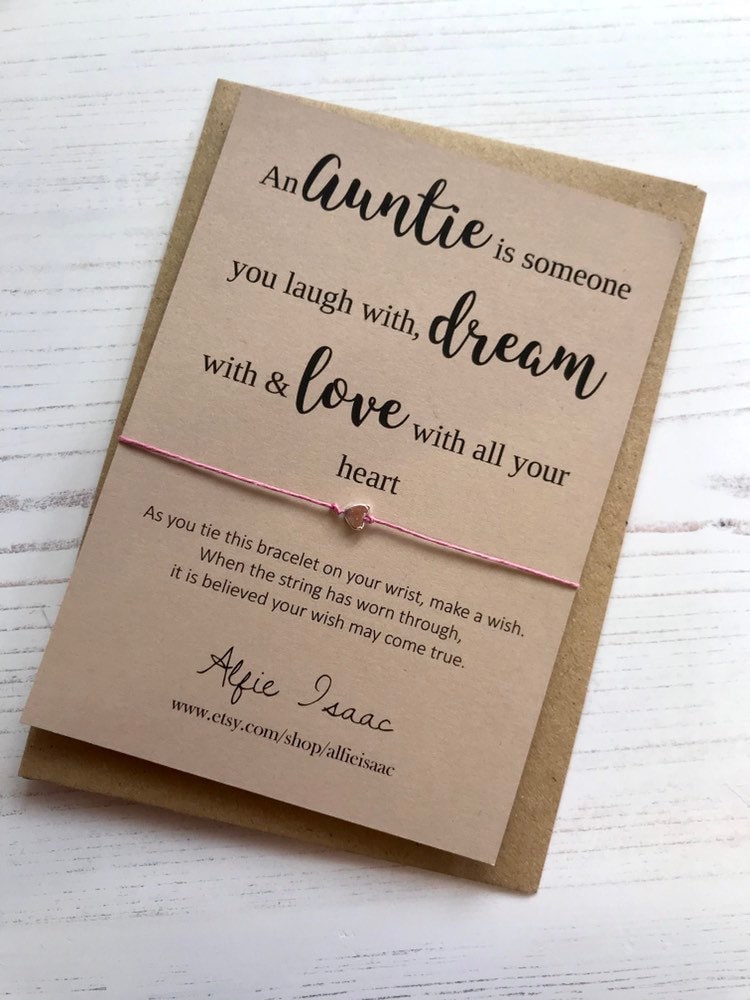 An Auntie is someone
you laugh with, dream
with & love with all your
heart
As you tie this bracelet on your wrist, make a wish.
When the string has worn through,
it is believed your wish may come true.
Alfie Isaac
www.etsy.com/shop/alfieisaac